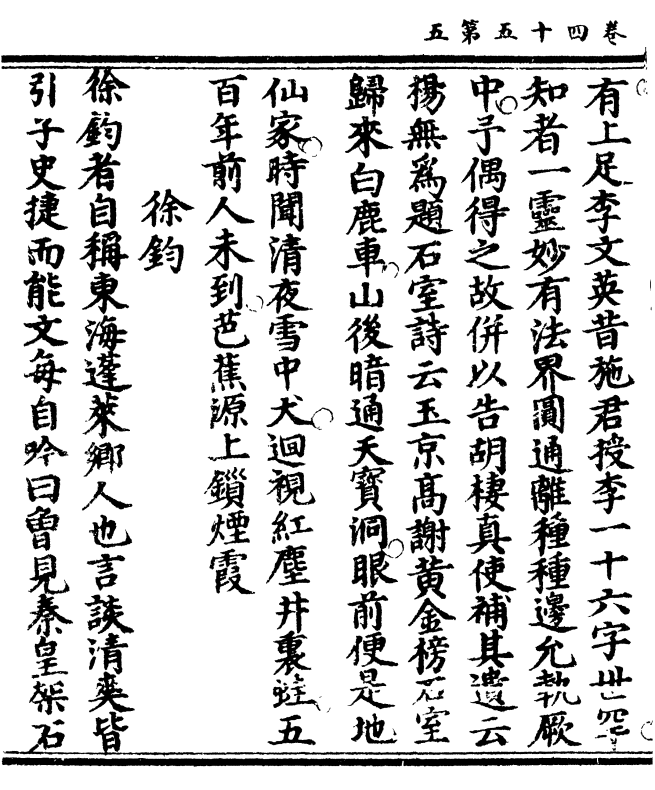 卷四十五第五
有上足李文英昔施君授李一十六字世罕
知者一靈妙有法界圓通離種種邊允執厥
中予偶得之故併以告胡棲真使補其遺云
楊無為題石室詩云玉京高謝黃金榜石室
歸來白鹿車山後暗通天寶洞眼前便是地
仙家時聞清夜雪中犬迴視紅塵井裏蛙五
百年前人未到芭蕉源上鎖煙霞
徐鈞
徐鈞者自稱東海蓬萊鄉人也言談清爽皆
引子史捷而能文每自吟曰曾見秦皇架石